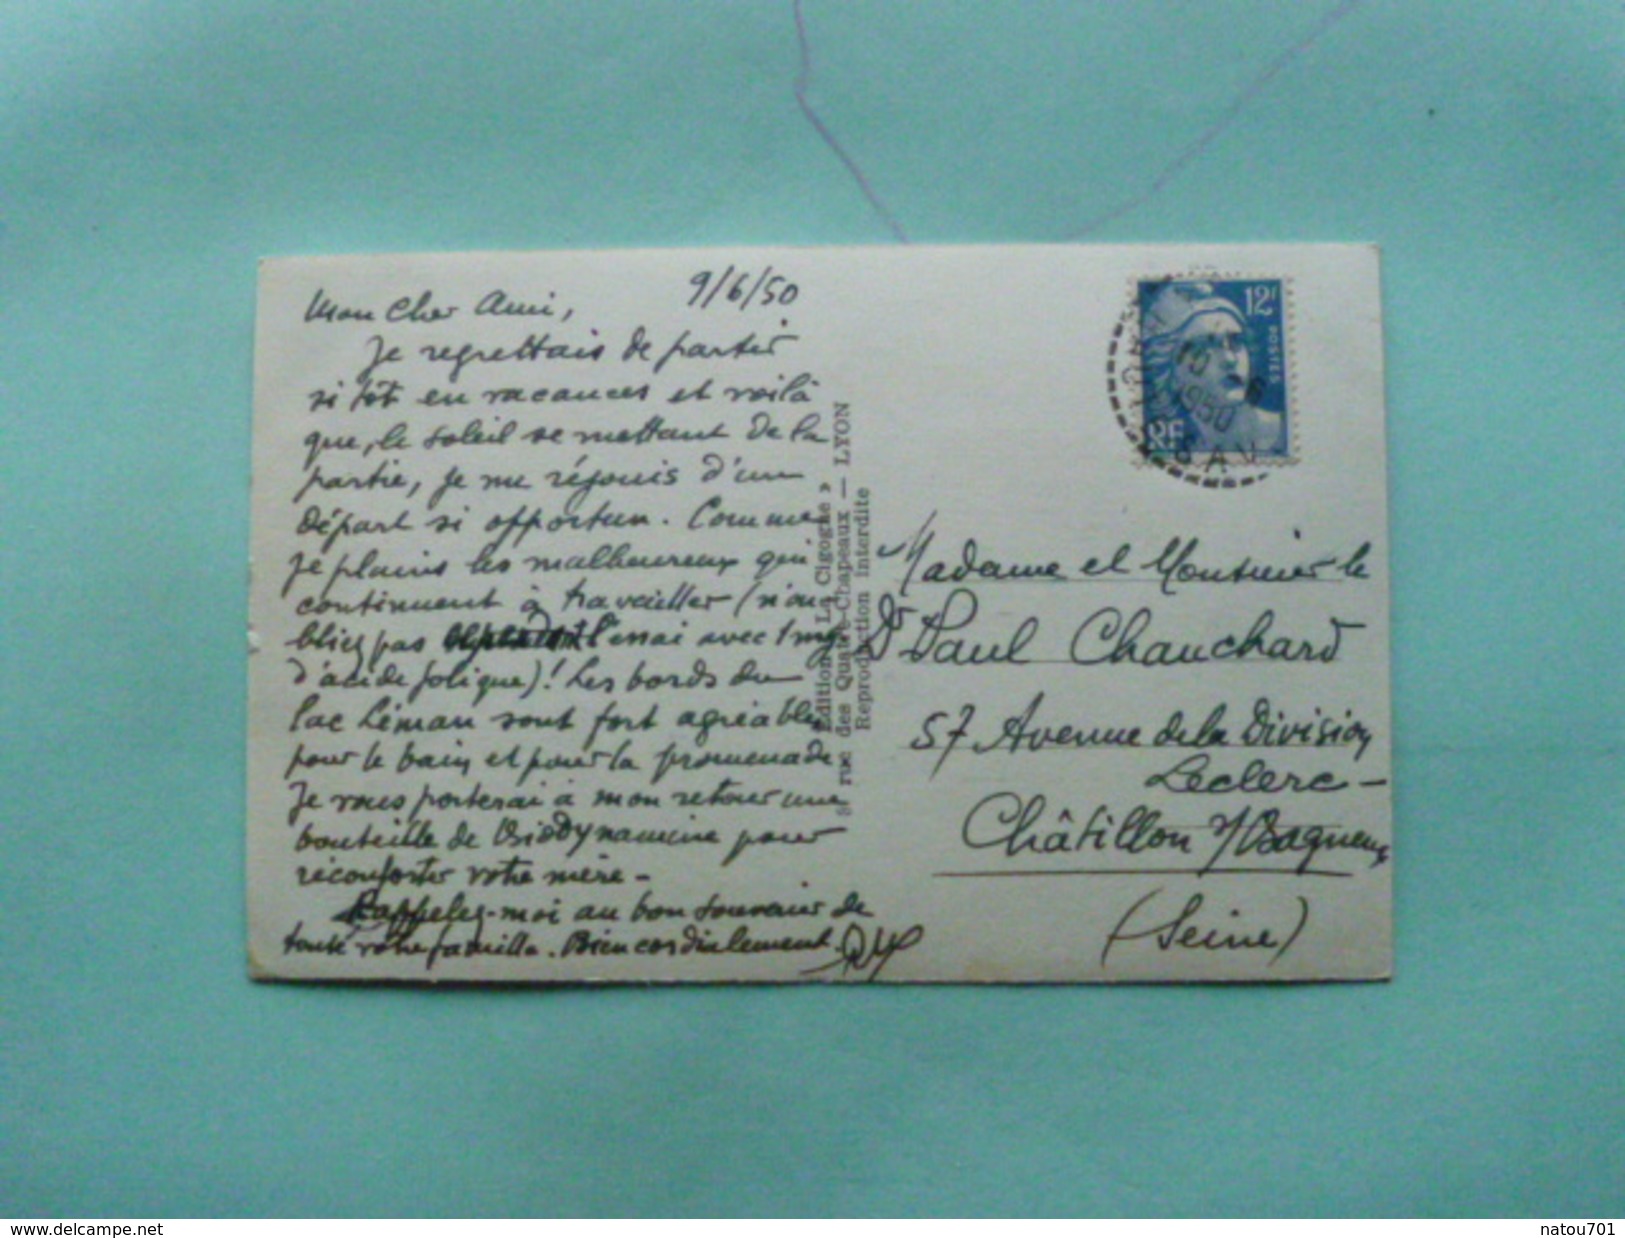 9/6/50
Mon Cher Ami,
Je regrettais de partir
si tôt en vacances et voilà
que, le soleil se mettant de la
partie, je me réjouis d'un
départ si opportun. Comme
je plains les malheureux qui
continuent à travailler (n'ou-
bliez pas l'essai avec 1 mg
d'acide folique)! Les bords du
lac Léman sont fort agréables
pour le bain et pour la promenade
Je vous porterai à mon retour une
bouteille de Biodynamine pour
réconforter votre mère -
Rappelez-moi au bon souvenir de
toute votre famille. Bien cordialement.
Edition « La Cigogne »
rue des Quatre-Chapeaux — LYON
Reproduction interdite
12F
POSTES
RF
10 -6
1950
SAV
Madame et Monsieur le
Dr Paul Chauchard
57 Avenue de la Division
Leclerc -
Châtillon s/Bagneux
(Seine)
www.delcampe.net
natou701